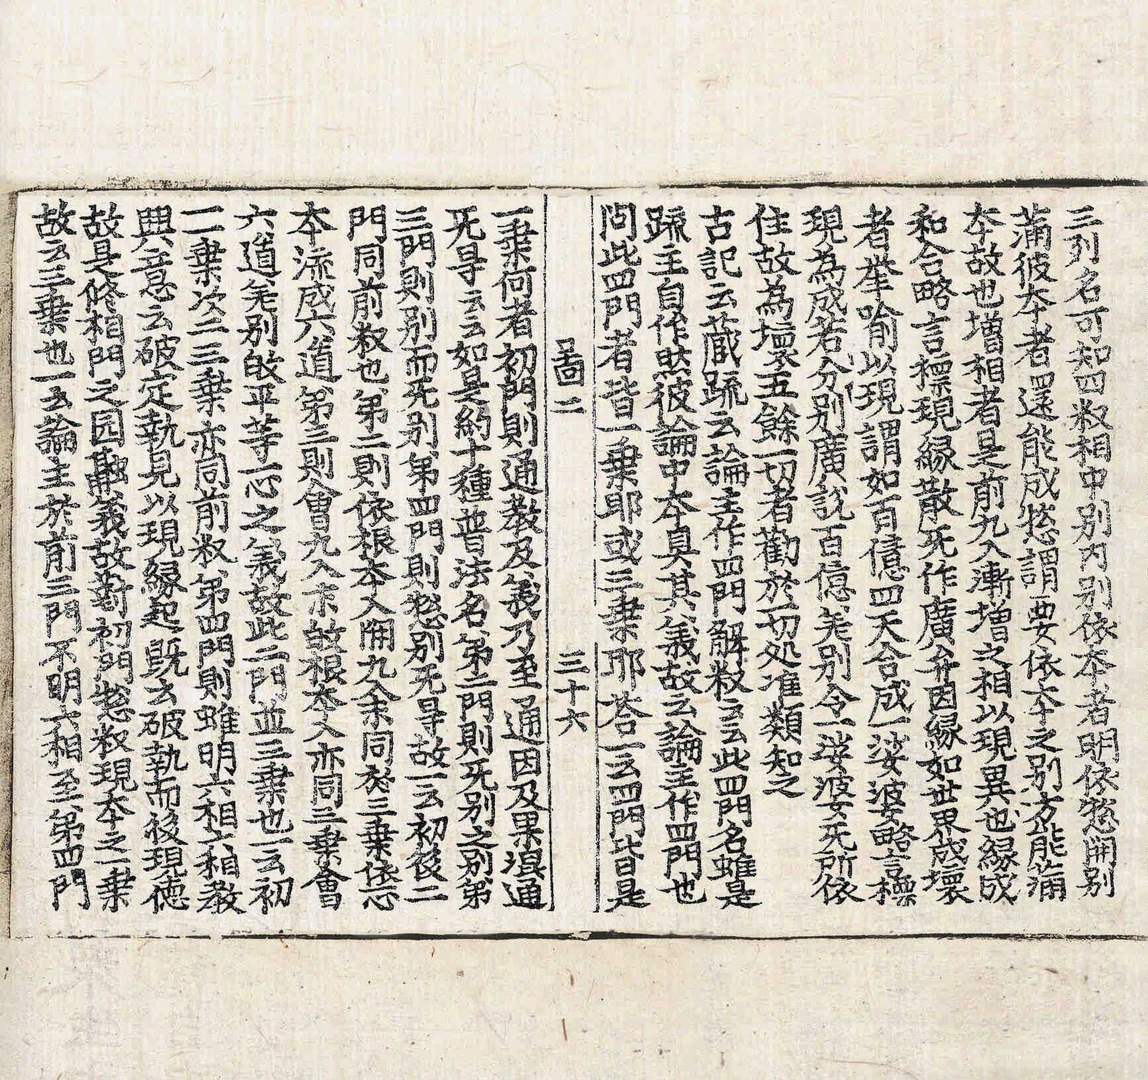 三列名可知四釈相中別內別依夲者明依㧾開別
蒲彼夲者還能成㧾謂要依夲之別方能蒲
夲故也增相者是前九入漸增之相以現異也縁成
和合略言摽現縁散死作廣弁因縁如世界成壊
者举喻以現謂如百億四天合成一娑婆略言摽
現為成若分別廣說百億差別令一娑婆死所依
住故為壊五餘一切者勸於一切处准類知之
古記云蔵䟽云論主作四門解釈云云此四門名雖是
䟽主自作然彼論中夲具其義故云論主作四門也
問此四門者皆一乗耶或三乗耶荅一云四門皆是
圖二 三十六
一乗何者初門則通教及義乃至通因及果混通
死㝵云云如是約十種普法名第二門則死別之別第
三門則別而死別第四門則㧾別死㝵故一云初後二
門同前釈也第二則依根夲入開九余同於三乗依心
夲流成六道第三則會九入末故根夲入亦同三乗會
六道差別故平等一心之義故此二門並三乗也一云初
一一乗次二三乗亦同前釈第四門則雖明六相六相教
興意云破定執見以現縁起既云破執而後現徳
故是修相門之园融義故對初門㧾釈現夲之一乗
故云三乗也一云論主於前三門不明六相至第四門